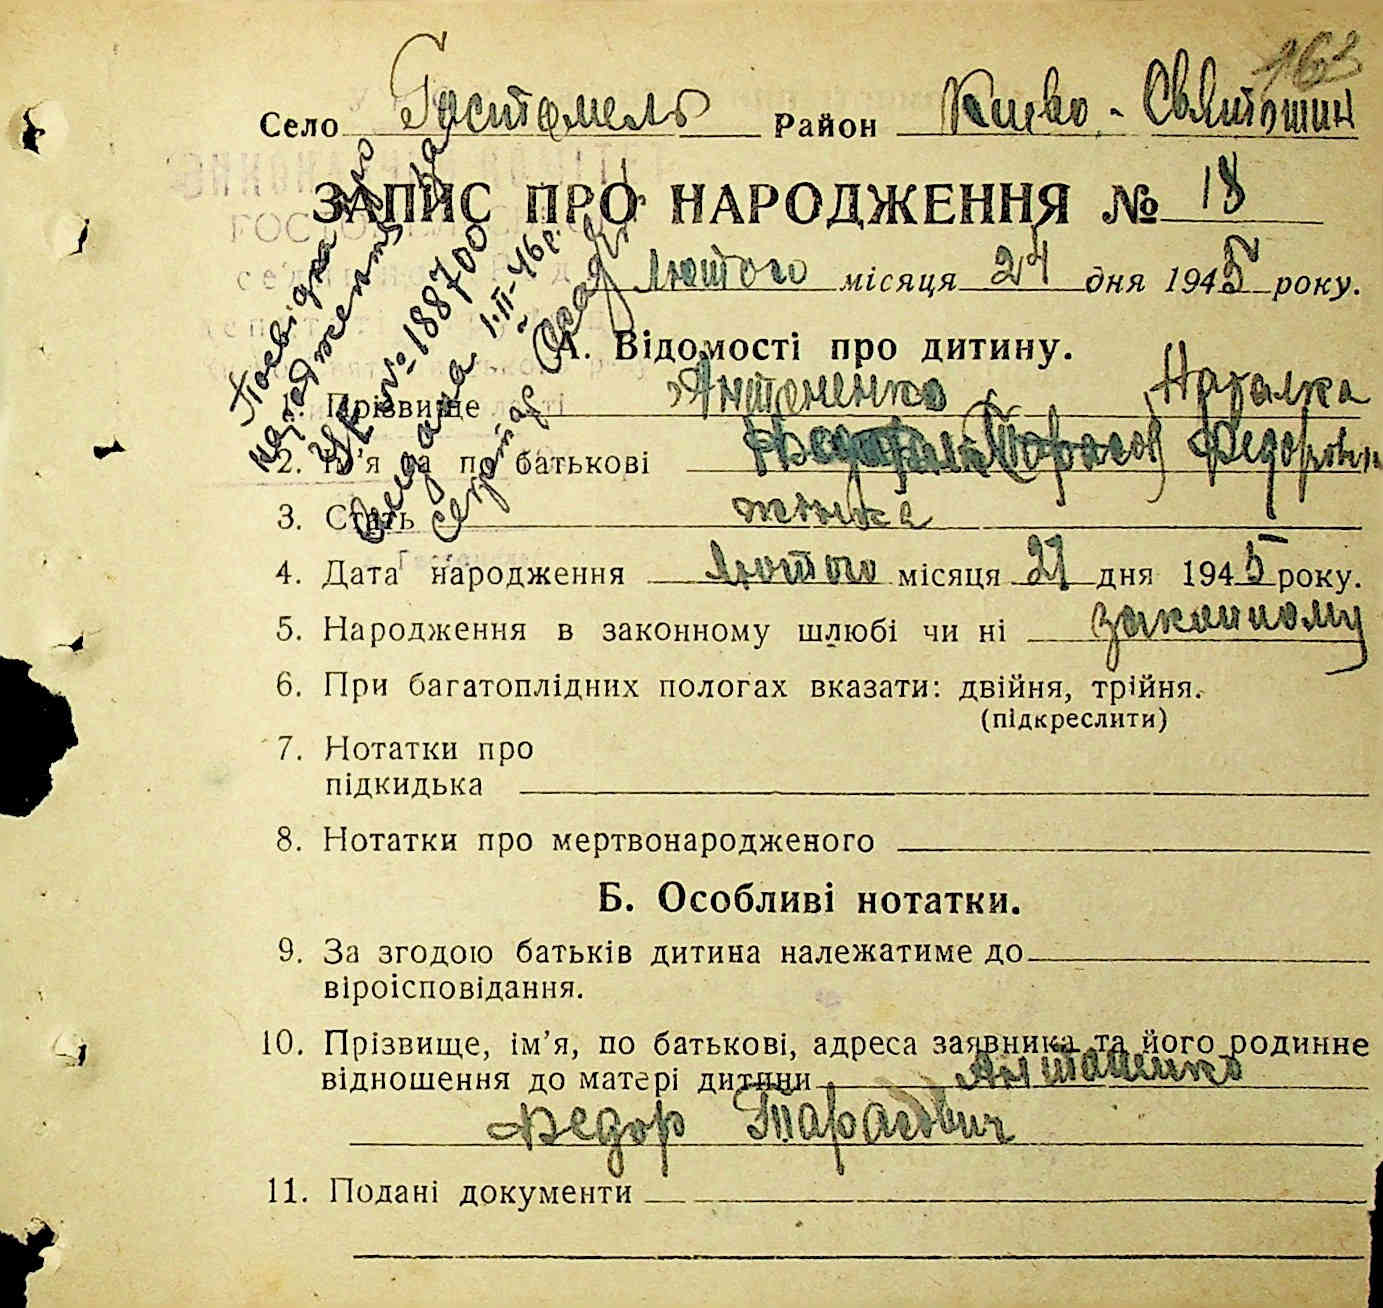 163
Село Гостомель Район Києво-Святошин
ЗАПИС ПРО НАРОДЖЕННЯ № 18
лютого місяця 24 дня 1945 року.
Посвідка про
народження за
№ 188700
видана 1.II-46 р.
секретар
А. Відомості про дитину.
1. Прізвище Антоненко Наталка
2. Ім’я та по батькові Федоровн
3. Стать жінка
4. Дата народження лютого місяця 21 дня 1945 року.
5. Народження в законному шлюбі чи ні законному
6. При багатоплідних пологах вказати: двійня, трійня.
(підкреслити)
7. Нотатки про
підкидька
8. Нотатки про мертвонародженого
Б. Особливі нотатки.
9. За згодою батьків дитина належатиме до
віроісповідання.
10. Прізвище, ім’я, по батькові, адреса заявника та його родинне
відношення до матері дитини Антоненко
Федор Тарасович
11. Подані документи